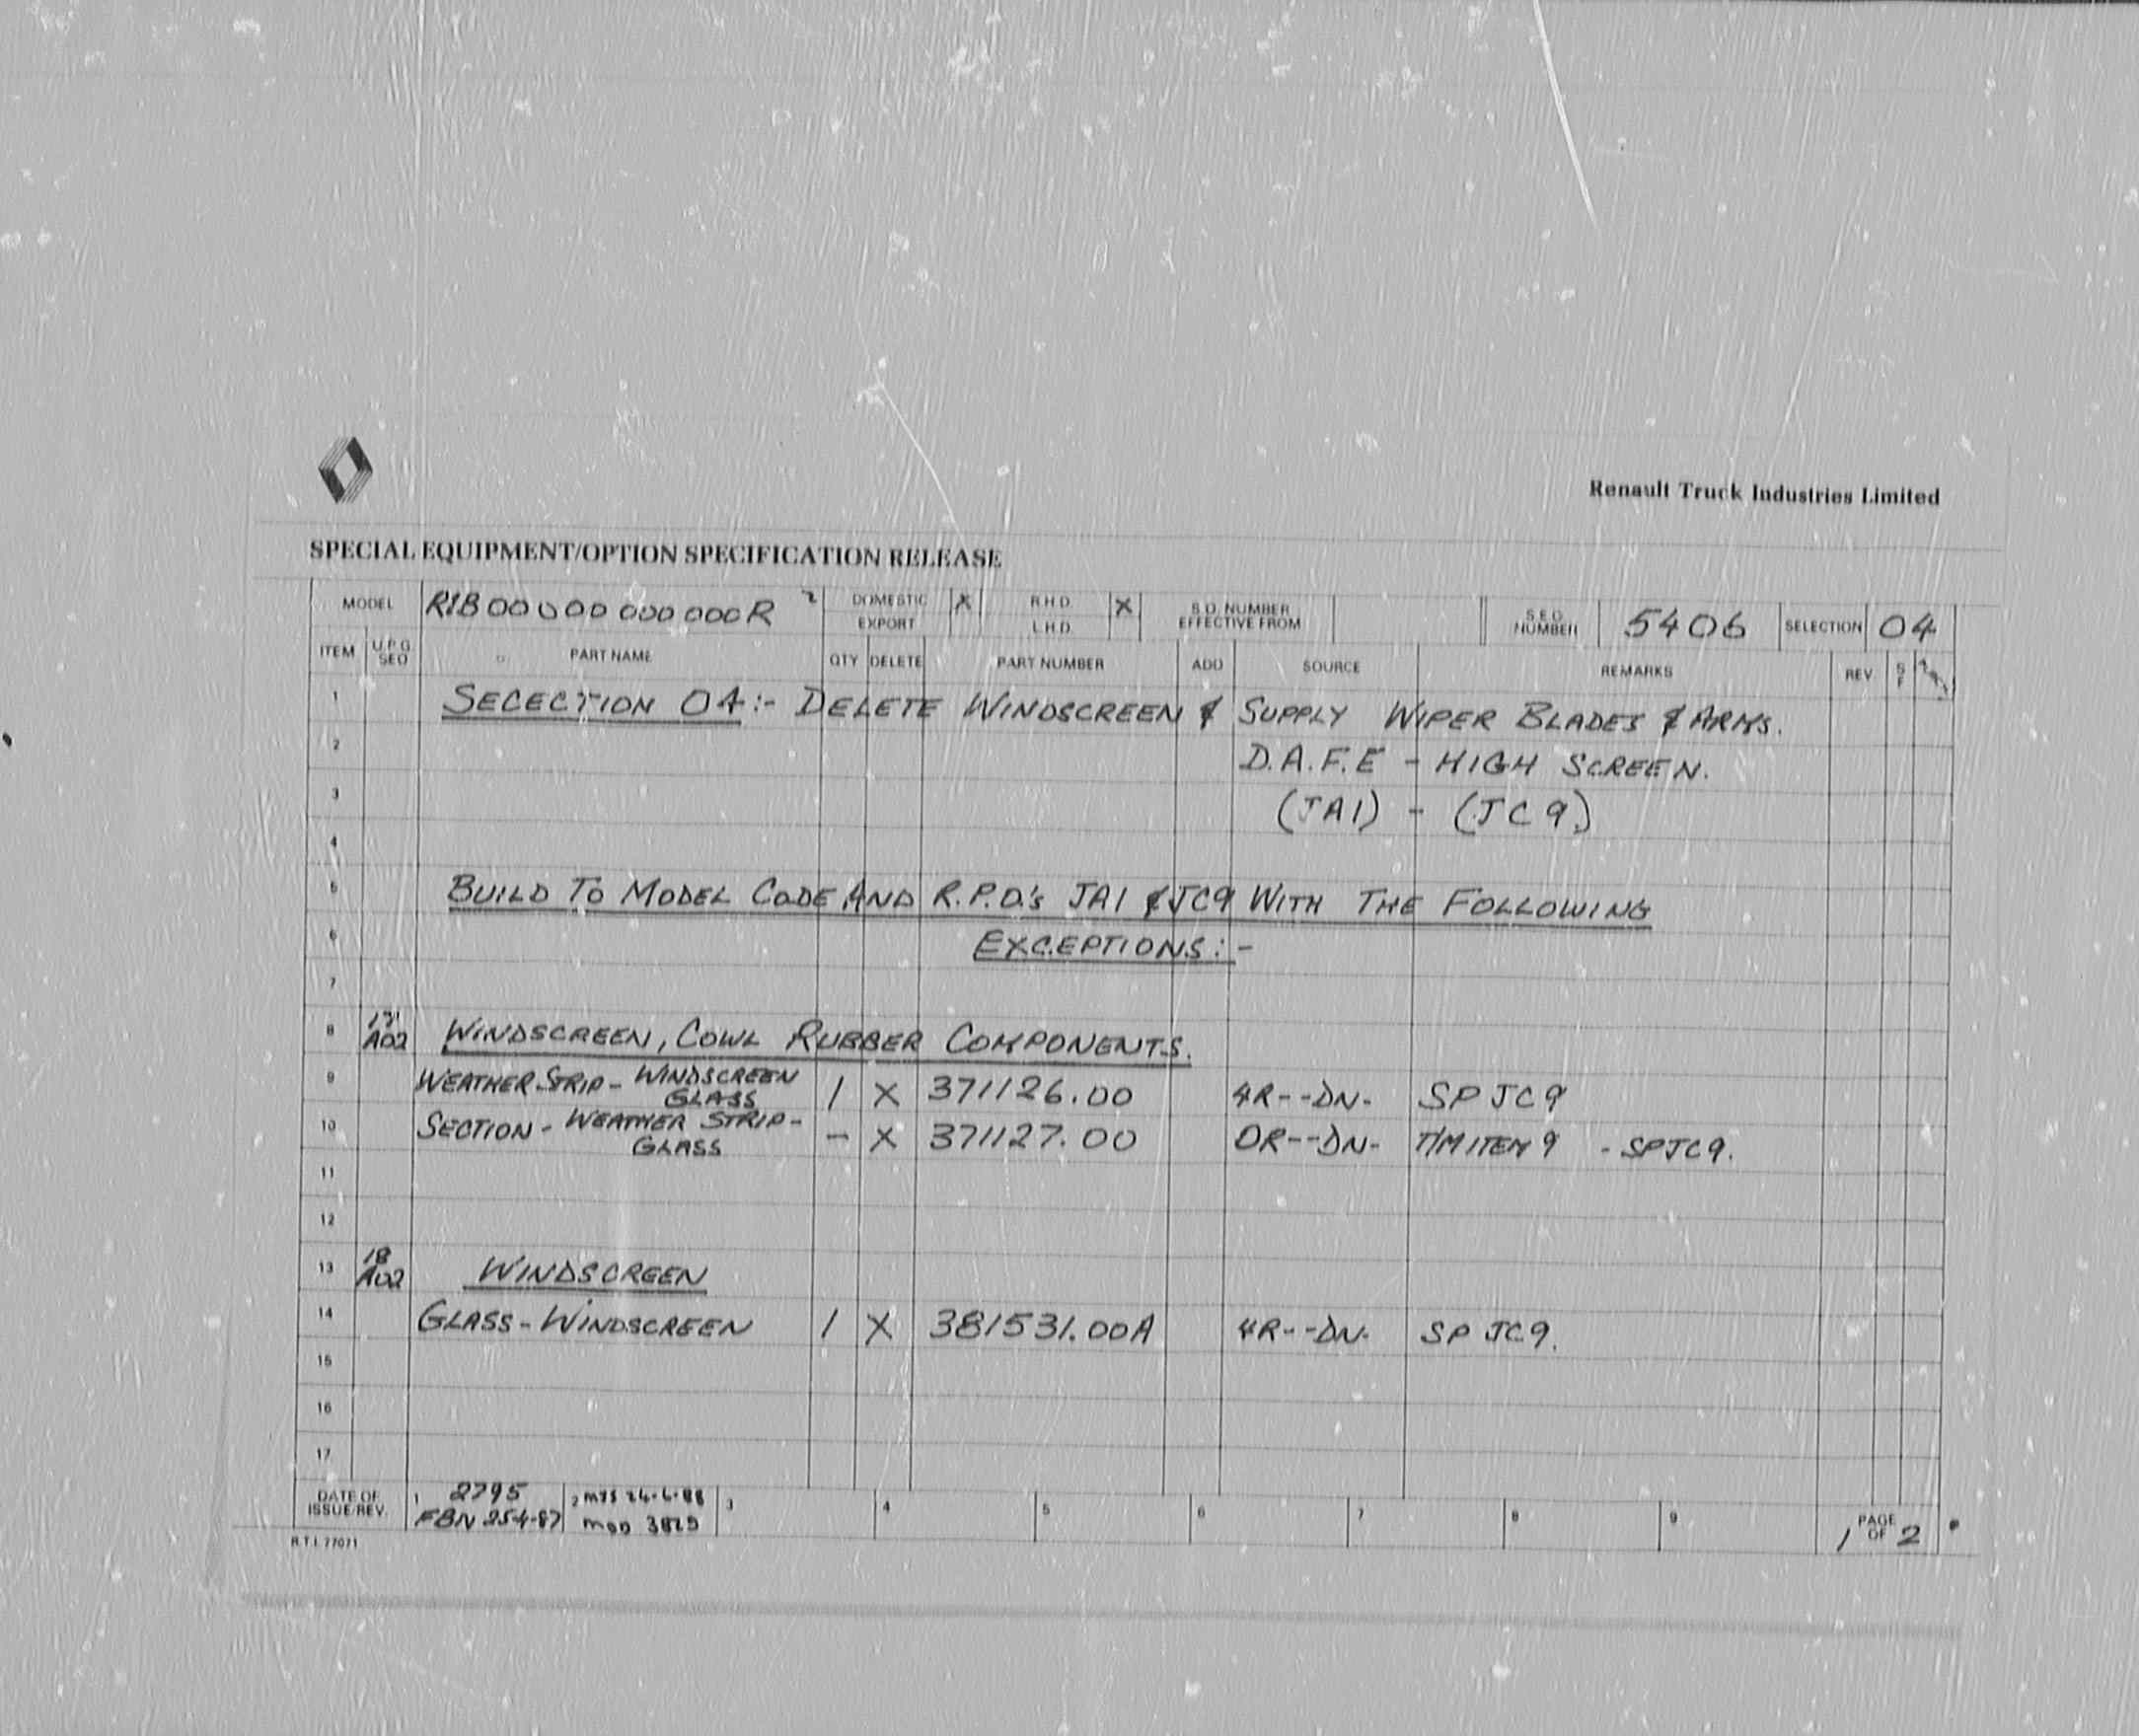 Renault Truck Industries Limited
SPECIAL EQUIPMENT/OPTION SPECIFICATION RELEASE
MODEL R1B00000000000R 2 DOMESTIC X R.H.D. X S.O. NUMBER S.E.O. 5406 SELECTION 04
EXPORT L.H.D. EFFECTIVE FROM NUMBER
ITEM U.P.G SEO PART NAME QTY DELETE PART NUMBER ADD SOURCE REMARKS REV S F
1 SECECTION 04:- DELETE WINDSCREEN & SUPPLY WIPER BLADES & ARMS.
2 D.A.F.E - HIGH SCREEN.
3 (JA1) - (JC9)
4
5 BUILD TO MODEL CODE AND R.P.O.'s JA1 & JC9 WITH THE FOLLOWING
6 EXCEPTIONS:-
7
8 A02 WINDSCREEN, COWL RUBBER COMPONENTS.
9 WEATHER STRIP - WINDSCREEN GLASS 1 X 371126.00 4R--DN- SP JC9
10 SECTION - WEATHER STRIP - GLASS - X 371127.00 OR--DN- T/M ITEM 9 - SPJC9.
11
12
13 18 A02 WINDSCREEN
14 GLASS - WINDSCREEN 1 X 381531.00A 4R--DN- SP JC9.
15
16
17
DATE OF ISSUE/REV. 1 2795 2 24-6-88 3 4 5 6 7 8 9 PAGE 1 OF 2
FBN 25-4-87 MOD
R.T.I. 77071